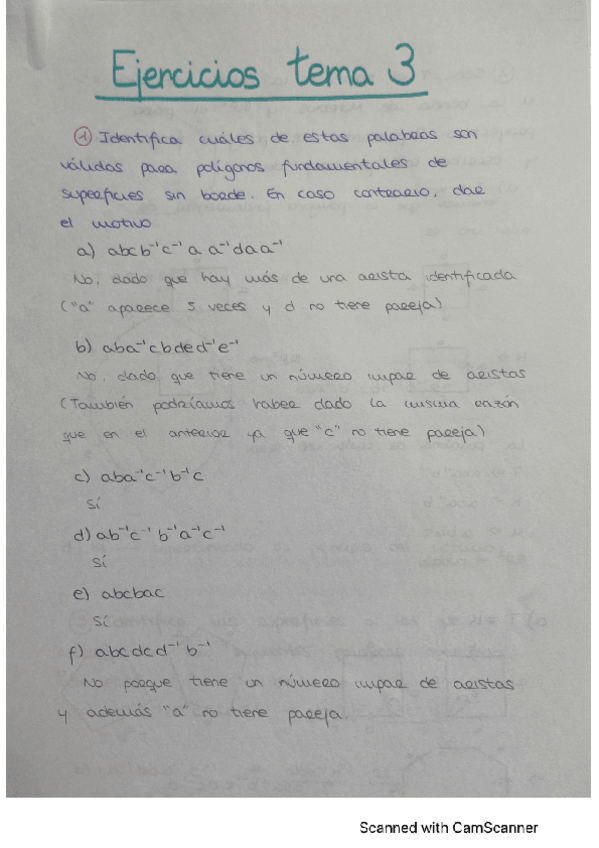 Ejercicios tema 3
① Identifica cuáles de estas palabras son
válidas para polígonos fundamentales de
superficies sin borde. En caso contrario, dar
el motivo
a) abcb⁻¹c⁻¹ a a⁻¹daa⁻¹
No, dado que hay más de una arista identificada
("a" aparece 5 veces y d no tiene pareja)
b) aba⁻¹cbded⁻¹e⁻¹
No, dado que tiene un número impar de aristas
(También podríamos haber dado la misma razón
que en el anterior ya que "c" no tiene pareja)
c) aba⁻¹c⁻¹b⁻¹c
Sí
d) ab⁻¹c⁻¹ b⁻¹a⁻¹c⁻¹
Sí
e) abcbac
Sí
f) abcdcd⁻¹b⁻¹
No porque tiene un número impar de aristas
y además "a" no tiene pareja.
Scanned with CamScanner